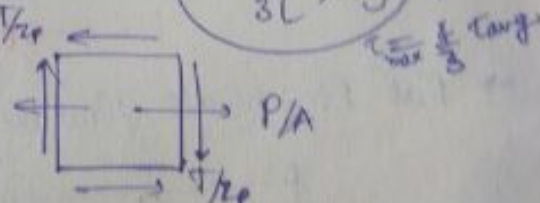 3L
T/Zp
τmax = 4/3 τavg
P/A
T/Zp